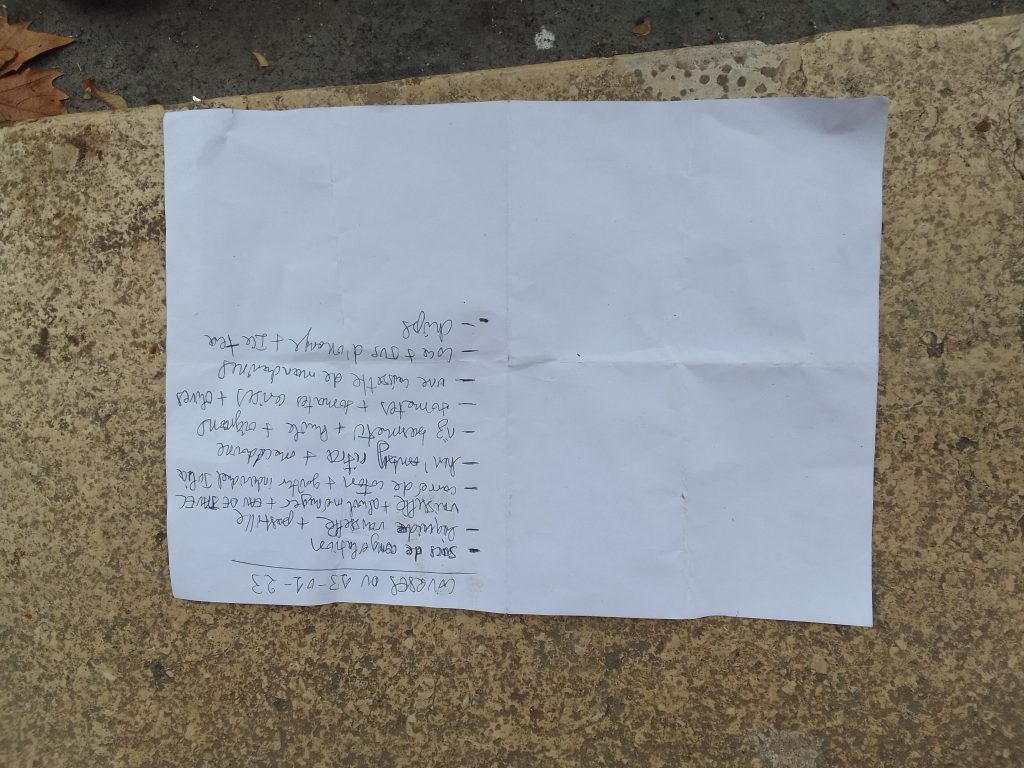 COURSES DU 13-01-23
- Sacs de congelation
- liquide vaisselle + pastille
vaisselle + alcool menager + EAU DE JAVEL
carré de coton + gouter individuel
- + macedoine
- riz basmati + huile + oignons
- tomates + tomates cerises + olives
- une caissette de mandarines
- Coca + Jus d'orange + Ice tea
- chips
-